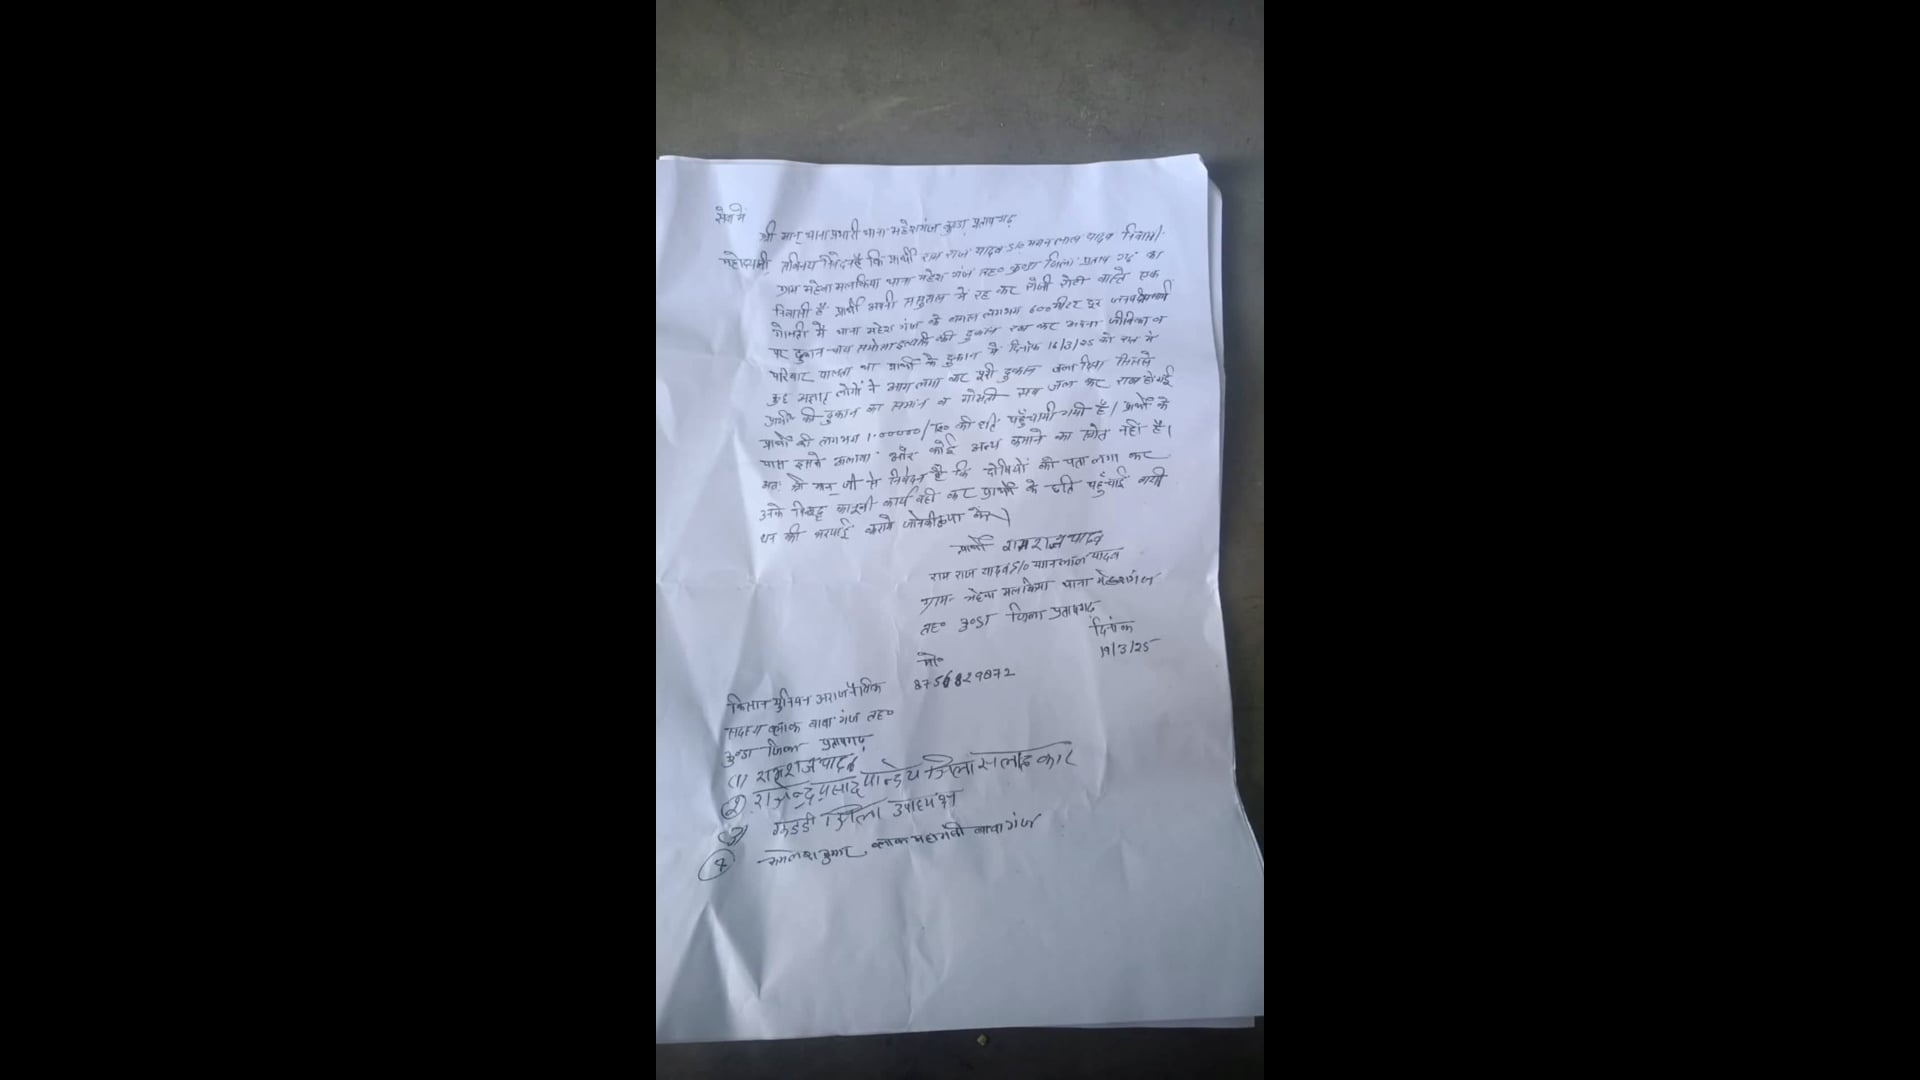 सेवा में
श्री मान् थाना प्रभारी थाना महेशगंज कुण्डा प्रतापगढ़
सविनय निवेदन है कि प्रार्थी राम राज यादव S/o मगन लाल यादव निवासी
ग्राम महेवा मलकिया थाना महेश गंज तह० कुण्डा जिला प्रताप गढ़ का
निवासी है प्रार्थी अपनी ससुराल में रह कर रोजी रोटी वास्ते एक
गोमती में थाना महेश गंज के बगल लगभग 600 मीटर दूर
पर दुकान चाय समोसा इत्यादि की दुकान रख कर अपना जीविका व
परिवार पालता था प्रार्थी के दुकान में दिनांक 16/3/25 को रात में
कुछ अज्ञात लोगों ने आग लगा कर पूरी दुकान जला दिया जिससे
प्रार्थी की दुकान का समान व गोमती सब जल कर राख हो गई
प्रार्थी की लगभग 1.00000/रु० की क्षति पहुँचायी गयी है। प्रार्थी के
पास इसके अलावा और कोई अन्य कमाने का स्रोत नहीं है।
अतः श्री मान् जी से निवेदन है कि दोषियों की पता लगा कर
उनके विरुद्ध कानूनी कार्यवही कर प्रार्थी के क्षति पहुँचाई गयी
धन की भरपाई कराये जाने की कृपा करें।
प्रार्थी रामराज यादव
राम राज यादव S/o मगनलाल यादव
ग्राम- महेवा मलकिया थाना महेशगंज
तह० कुण्डा जिला प्रतापगढ़
दिनांक
19/3/25
मो०
8756829872
किसान युनियन अराजनैतिक
सदस्य ब्लाक बाबा गंज तह०
कुण्डा जिला प्रतापगढ़
(1) रामराज यादव
(2) राजेन्द्र प्रसाद पान्डेय जिला सलाहकार
(3) जिला उपाध्यक्ष
(4) कुमार ब्लाक महामंत्री बाबा गंज